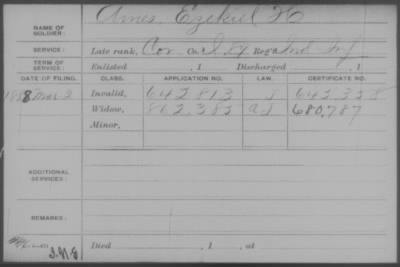 Ames, Ezekiel H
NAME OF SOLDIER:
SERVICE: Late rank, Cor. Co. I 84 Reg't Ind Inf
TERM OF SERVICE: Enlisted , 1 Discharged , 1
DATE OF FILING. CLASS. APPLICATION NO. LAW. CERTIFICATE NO.
1888 Mar 2 Invalid, 642.813
Widow, 862.382 680.787
Minor,
ADDITIONAL SERVICES:
REMARKS:
Died , 1 , at